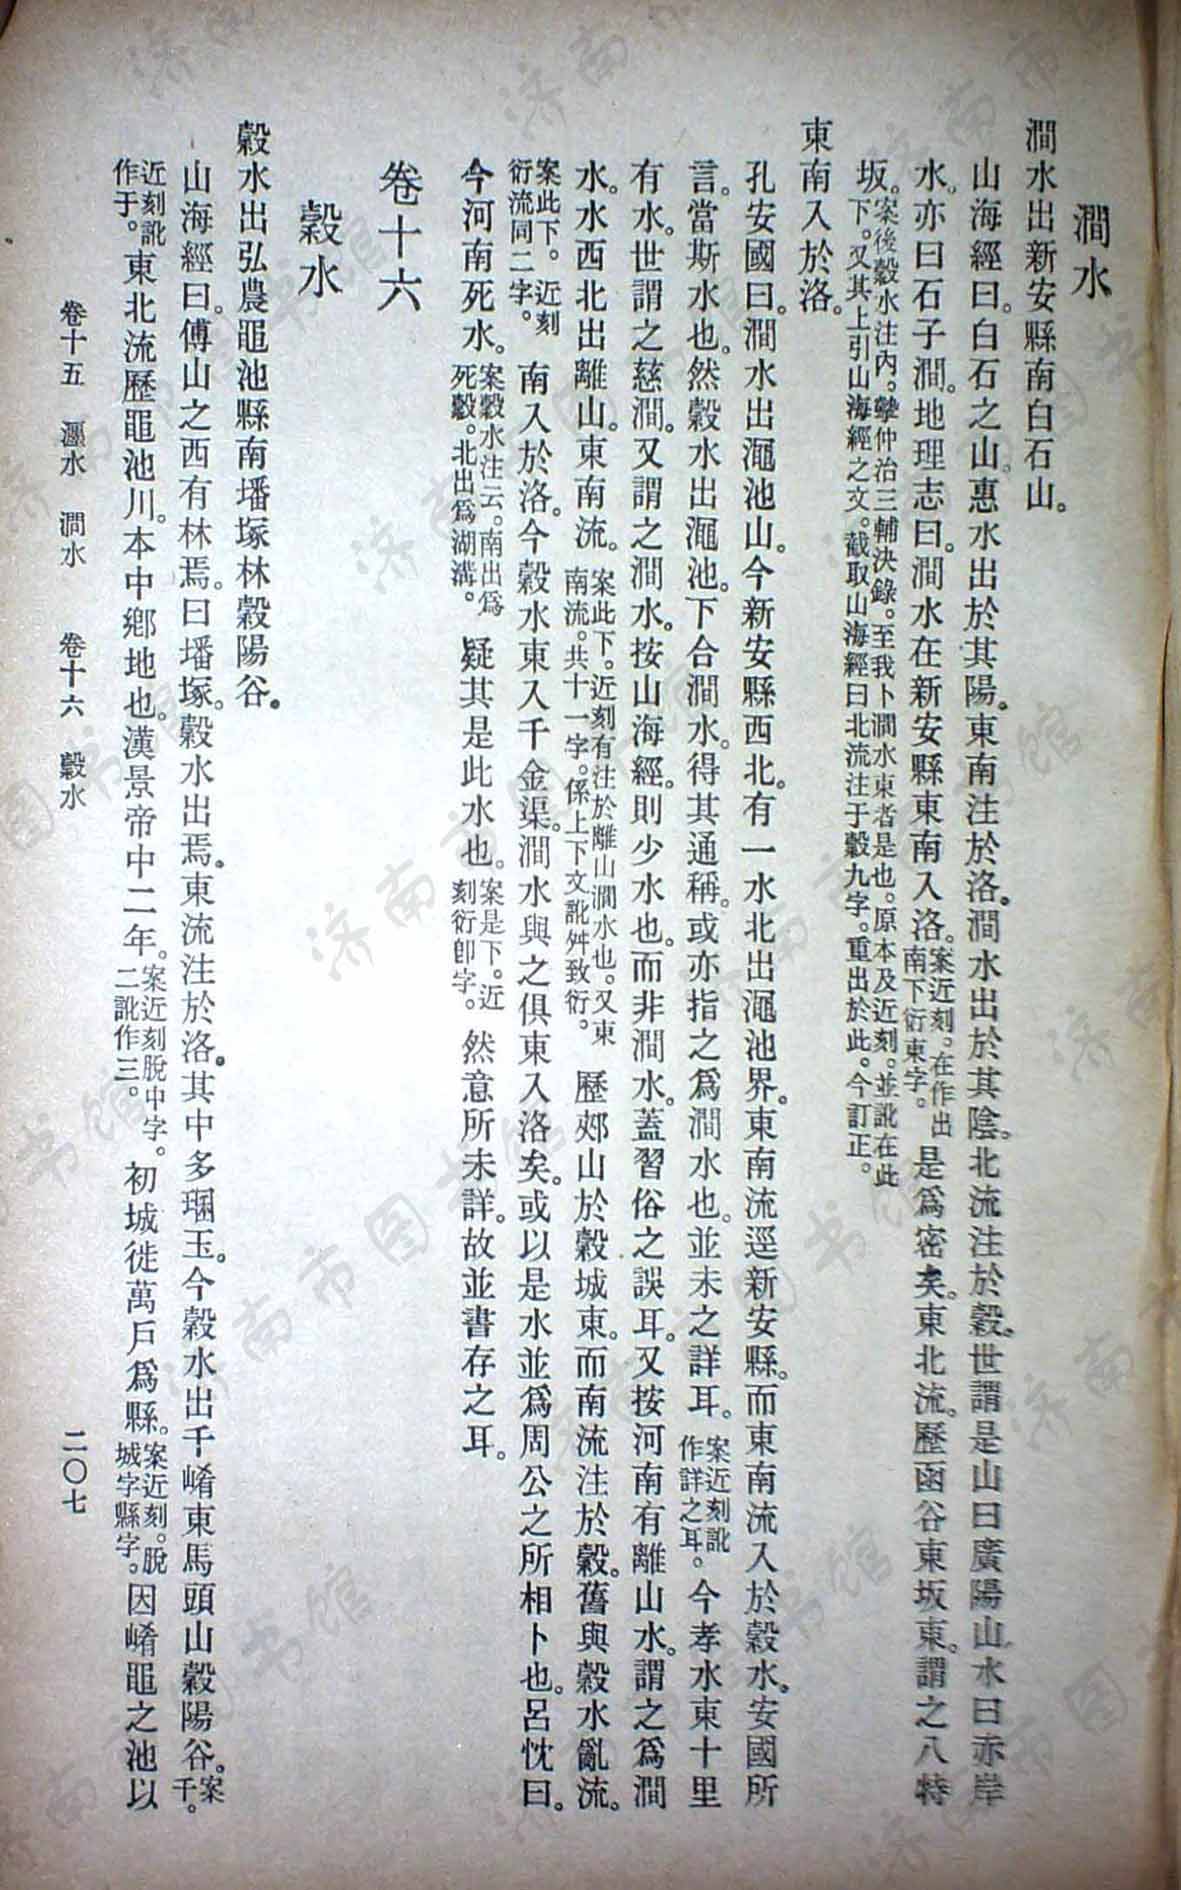 澗水
澗水出新安縣南白石山。
山海經曰。白石之山。惠水出於其陽。東南注於洛。澗水出於其陰。北流注於穀。世謂是山曰廣陽山。水曰赤岸
水。亦曰石子澗。地理志曰。澗水在新安縣東南入洛。案近刻。在作出南下衍東字。是爲密矣。東北流。歷函谷東坂東。謂之八特
坂。案後穀水注內。摯仲治三輔決錄。至我卜澗水東者是也。原本及近刻。並訛在此下。又其上引山海經之文。截取山海經曰北流注于穀九字。重出於此。今訂正。
東南入於洛。
孔安國曰。澗水出澠池山。今新安縣西北。有一水北出澠池界。東南流逕新安縣。而東南流入於穀水。安國所
言。當斯水也。然穀水出澠池。下合澗水。得其通稱。或亦指之爲澗水也。並未之詳耳。案近刻訛作詳之耳。今孝水東十里
有水。世謂之慈澗。又謂之澗水。按山海經。則少水也。而非澗水。蓋習俗之誤耳。又按河南有離山水。謂之爲澗
水。水西北出離山。東南流。案此下。近刻有注於離山澗水也。又東南流。共十一字。係上下文訛舛致衍。歷郟山於穀城東。而南流注於穀。舊與穀水亂流。
案此下。近刻衍流同二字。南入於洛。今穀水東入千金渠。澗水與之俱東入洛矣。或以是水並爲周公之所相卜也。呂忱曰。
今河南死水。案穀水注云。南出爲死穀。北出爲湖溝。疑其是此水也。案是下。近刻衍卽字。然意所未詳。故並書存之耳。
卷十六
穀水
穀水出弘農黽池縣南墦塚林穀陽谷。
山海經曰。傅山之西有林焉。曰墦塚。穀水出焉。東流注於洛。其中多珚玉。今穀水出千崤東馬頭山穀陽谷。案千。
近刻訛作于。東北流歷黽池川。本中鄉地也。漢景帝中二年。案近刻脫中字。二訛作三。初城徙萬戶爲縣。案近刻。脫城字縣字。因崤黽之池以
卷十五 瀍水 澗水 卷十六 穀水 二〇七